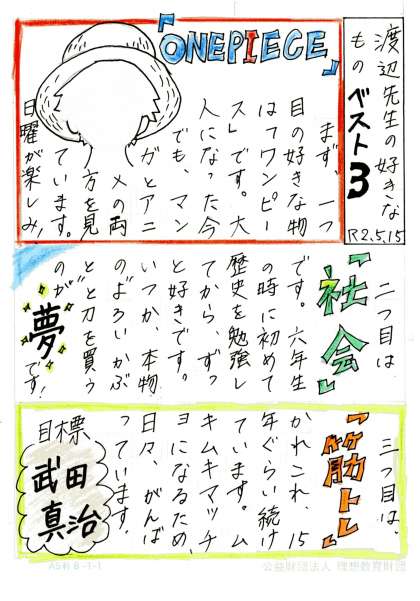 渡辺先生の好きな
もの ベスト3
R2.5.15
『ONEPIECE』
まず、一つ
目の好きな物
は『ワンピー
ス』です。大
人になった今
でも、マン
ガとアニ
メの両
方を見
ています。
日曜が楽しみ!
二つ目は
『社会』
です。六年生
の時に初めて
歴史を勉強し
てから、ずっ
と好きです。
いつか、本物
のよろいかぶ
とと刀を買う
のが夢です!
三つ目は、
『筋トレ』
かれこれ、15
年ぐらい続け
ています。ム
キムキマッチ
ョになるため、
日々、がんば
っています。
目標
武田
真治
A5判 8-1-1
公益財団法人 理想教育財団